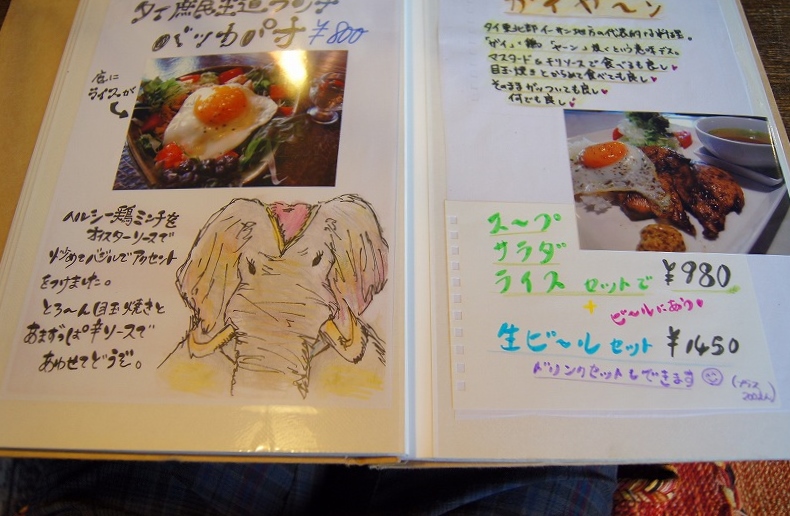 タイ庶民王道ランチ
バッカパオ ¥800
底に
ライスが
ヘルシー鶏ミンチを
オイスターソースで
炒めてバジルでアクセント
をつけました。
とろ〜ん目玉焼きと
あまずっぱ辛ソースで
あわせてどうぞ。
ガイヤーン
タイ東北部イーサン地方の代表的な料理。
「ガイ」・鶏 「ヤーン」焼くという意味デス。
マスタード&チリソースで食べるも良し♥
目玉焼きとからめて食べても良し♥
そのままがっついても良し♥
何でも良し♥
スープ
サラダ
ライス セットで ¥980
+ ビールにあう♥
生ビール セット ¥1450
ドリンクセットもできます (プラス
200えん)